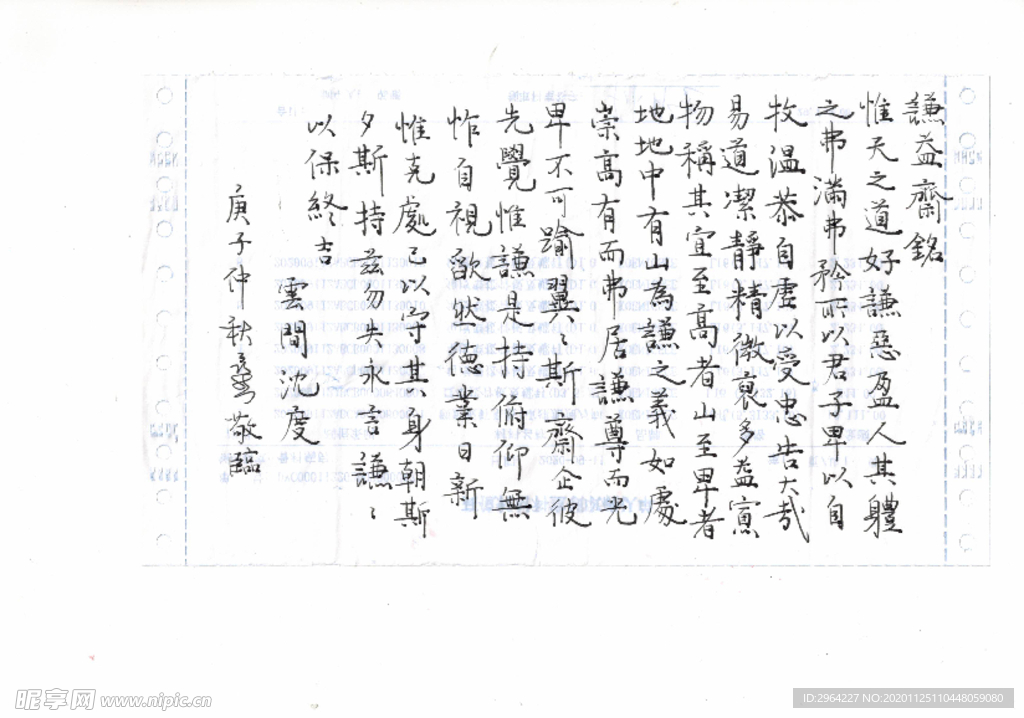 謙益齋銘
惟天之道好謙惡盈人其體
之弗滿弗矜所以君子卑以自
牧温恭自虛以受忠告大哉
易道潔靜精微裒多益寡
物稱其宜至高者山至卑者
地地中有山為謙之義如處
崇高有而弗居謙尊而光
卑不可踰翼〻斯齋企彼
先覺惟謙是持俯仰無
怍自視欿然德業日新
惟克處己以守其身朝斯
夕斯持茲勿失永言謙〻
以保終吉
雲間沈度
庚子仲秋 敬臨
昵享网 www.nipic.cn
ID:2964227 NO:20201125110448059080